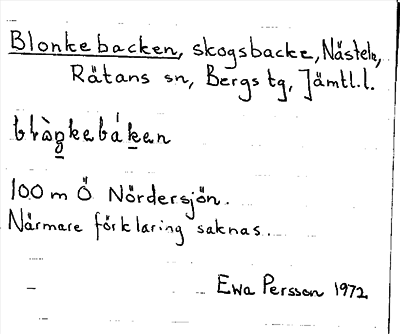 Blonkebacken, skogsbacke, Nästeln,
Rätans sn, Bergs tg, Jämtl.l.
100 m Ö Nördersjön.
Närmare förklaring saknas.
Ewa Persson 1972